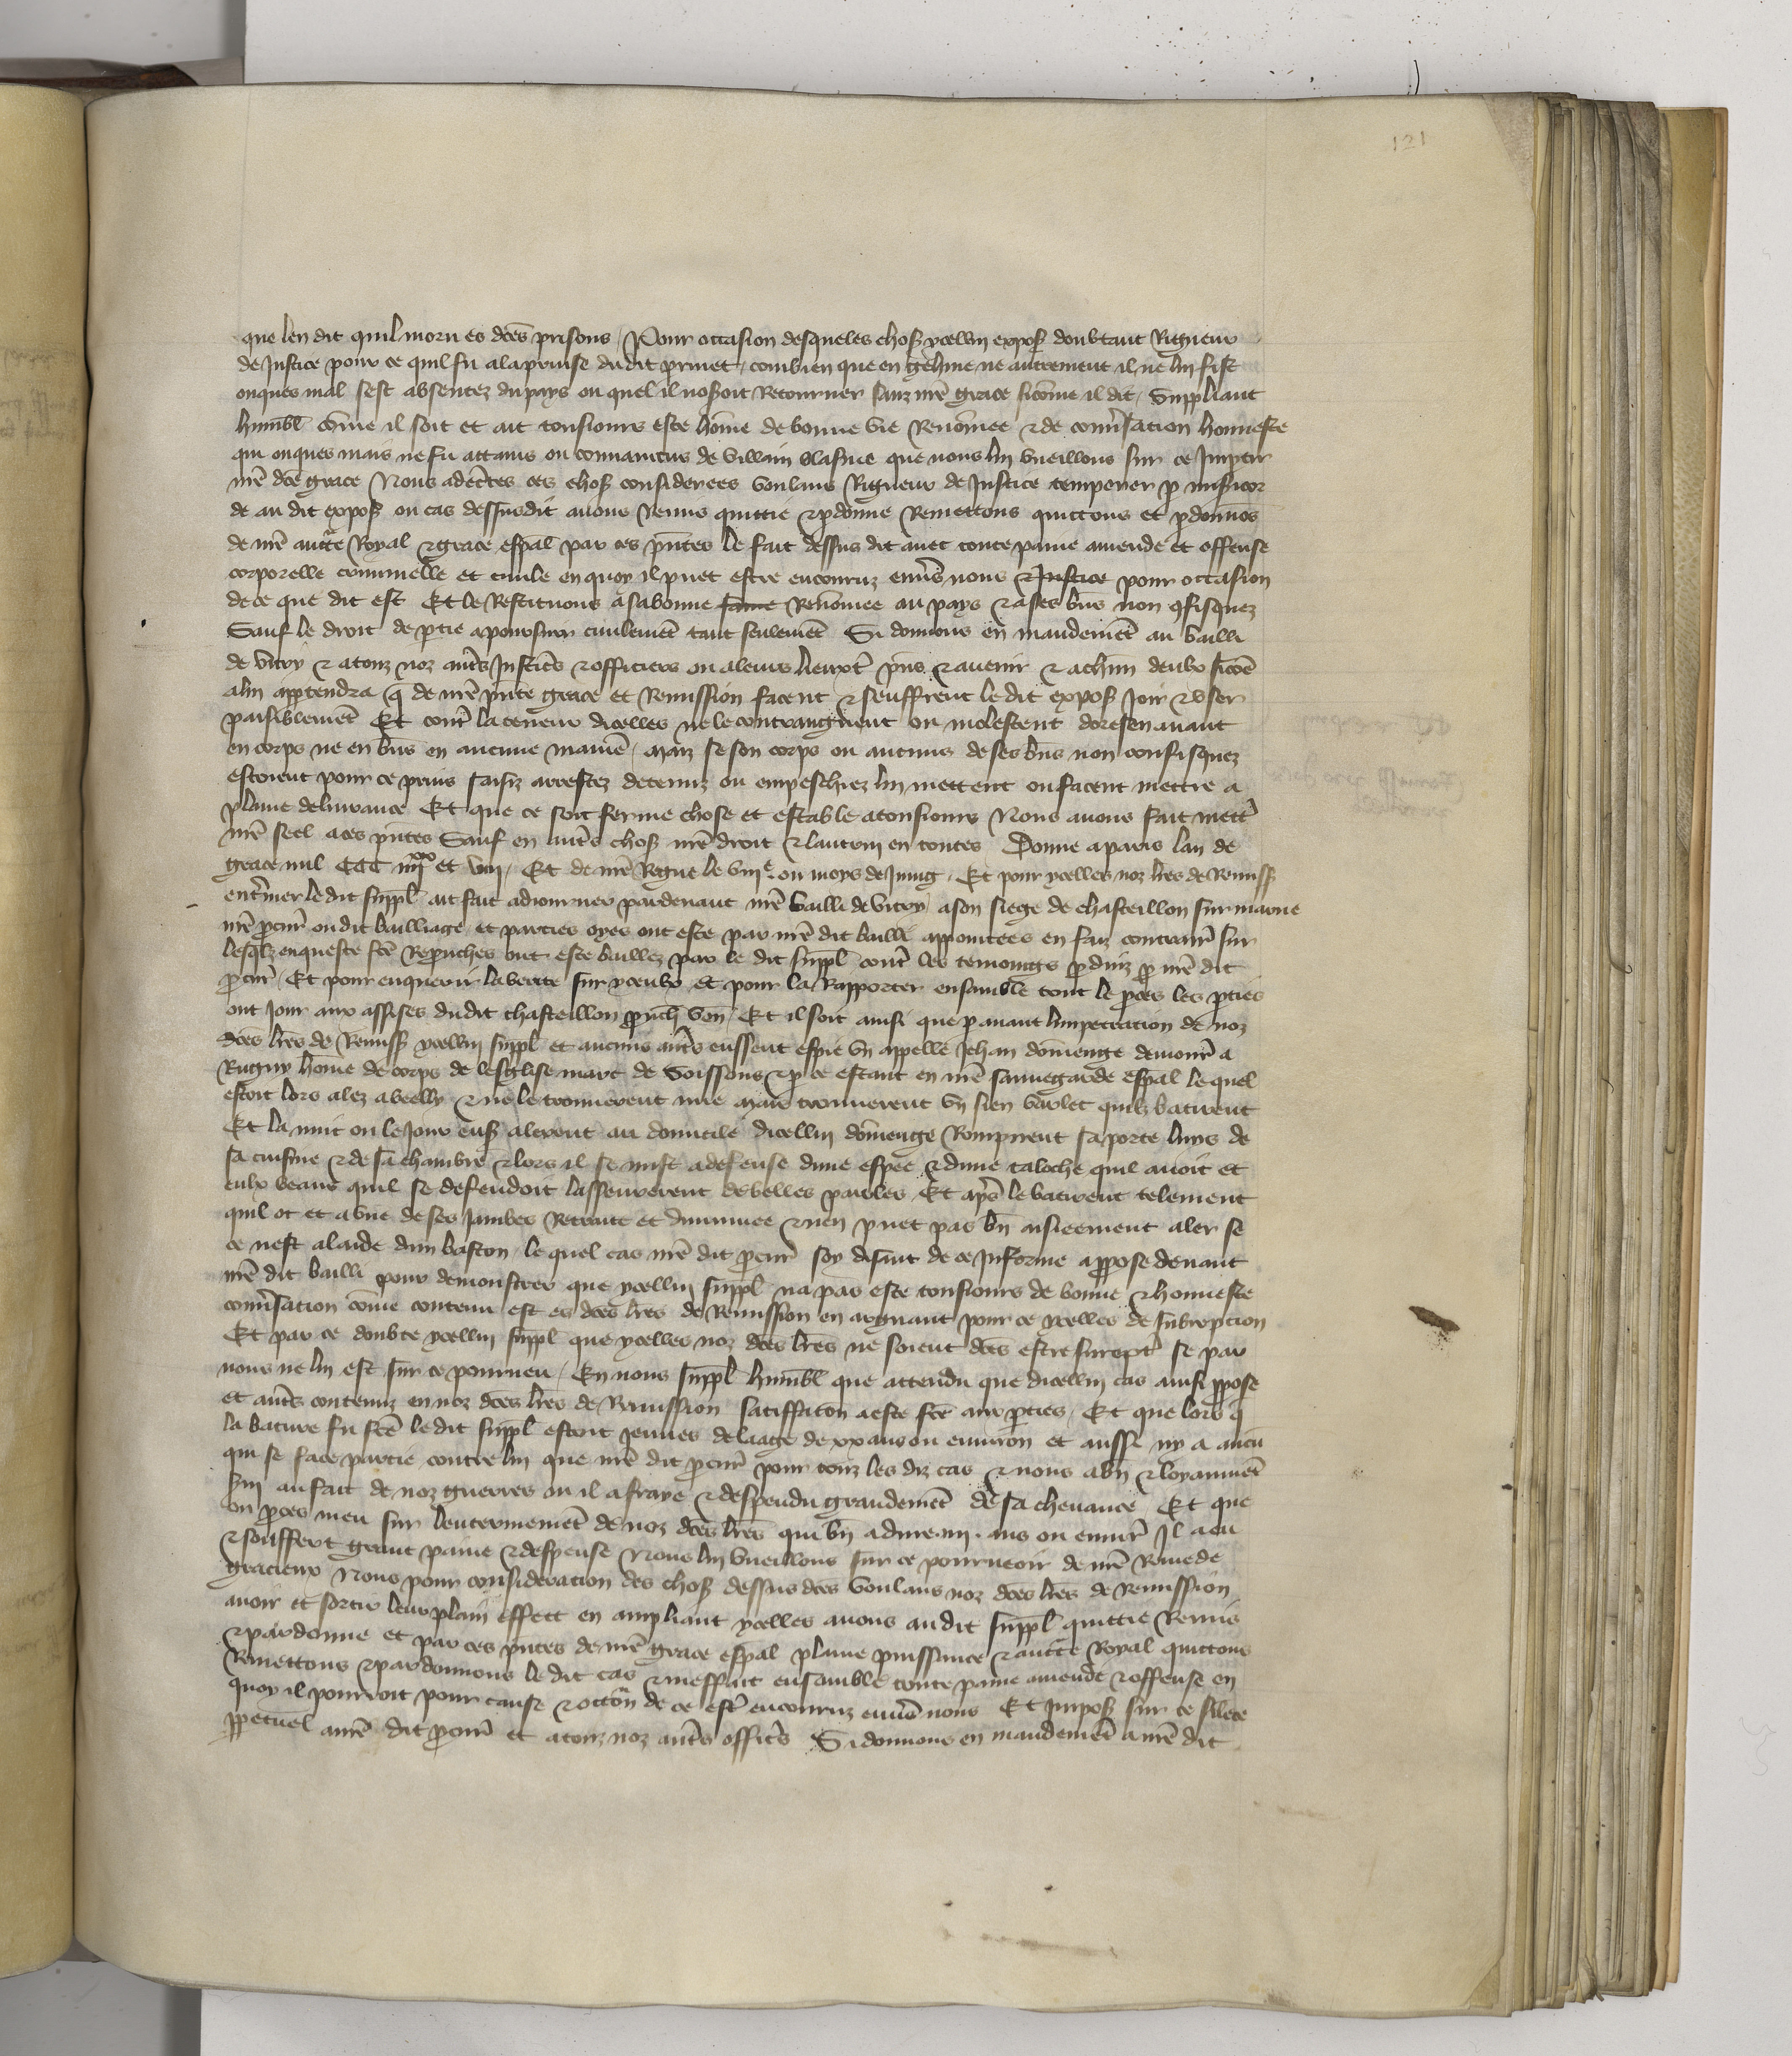 121
que len dit quil moru es dces prisons / Pour occasion desqueles chos ycellui expos doubtant Rigueur
de Justice pour ce quil fu a la prinse dudit prinet, combien que en gehine ne autrement il ne lui fist
onques mal sest absentez du pays ou quel il noseroit Retourner sanz nre grace sicome il dit, Suppliant
humbl come il soit et ait tousiours este home de bonne vie Renomee & de conversation honneste
qui onques mais ne fu attains ou convaincus de villain blasme que nous lui vueillons sur ce Impartir
nre dce grace Nous adecertes ces chos considerees voulans Rigueur de Justice temperer p misericor
de au dit expos ou cas dessusdit avons Remis quittie & pdonne Remettons quittons et pdonnos
de nre aucte Royal & grace espal par ces pntes le fait dessus dit avec toute paine amende et offense
corporelle criminelle et civile en quoy il puet estre encouruz envs nous & Justice pour occasion
de ce que dit est Et le Restituons a sa bonne fame Renomee au pays & a ses bns non cfisquez
Sauf le droit de ptie a poursuir civilemet tant seulemet Si donnons en mandemet au bailli
de vitry & a touz noz auts Justicrs & officiers ou a leurs lieuxt pns & avenir & a chun deulx sicoe
a lui apptendra q de nre pnte grace et Remission facent & seuffrent le dit expos Joir & user
paisiblemet Et contr la teneur dicelles ne le contraingnent ou molestent doresenavant
en corps ne en bns en aucune manie, maiz se son corps ou aucuns de ses bns non confisquez
estoient pour ce prins saisiz arrestez detenuz ou empeschiez lui mettent ou facent mettre a
plaine delivrance Et que ce soit ferme chose et estable a tousiours Nous avons fait mettr
nre seel a ces pntes Sauf en auts chos nre droit & lautrui en toutes Donne a paris lan de
grace mil CCC iiiixx et viii, Et de nre Regne le viiie ou moys de Juing, Et pour ycelles noz lres de Remiss
enteriner le dit suppl ait fait adiourner pardevant nre bailli de vitry a son siege de chasteillon sur marne
nre pcur ou dit bailliage et parties oyes ont este par nre dit bailli appointees en faiz contraires sur
lesqlz enqueste fce Repruches ont este baillez par le dit suppl contr les temoings pduiz p nre dit
pcur, Et pour enquerir la verite sur yceulx et pour la Rapporter ensamble tout le pces les pties
ont Jour aux assises dudit chasteillon pch ven, Et il soit ainsi que p avant limpetracion de noz
dces lres de Remiss ycellui suppl et aucuns auts eussent espie un appelle Jehan domenge demour a
Rugny home de corps de lesglise marc de Soissons & p ce estant en nre sauvegarde espal le quel
estoit lors alez a beelly & ne le trouverent mie mais trouverent un sien varlet quilz batirent
Et la nuit ou le Jour ens alerent au domicile dicellui domenge Rompirent sa porte luis de
sa cuisine & de sa chambre & lors il se mist a defense dune espee & dune taloche quil avoit et
eulx veans quil se defendoit lasseurerent de belles paroles Et aps le batirent telement
quil ot et a une de ses Jambes Retraite et diminuee & nen puet pas bn aisieement aler se
ce nest a laide dun baston, le quel cas nre dit pcur soy disant de ce Informe appose devant
nre dit bailli pour demonstrer que ycellui suppl na pas este tousiours de bonne & honneste
conversation come contenu est es dces lres de Remission en arguant pour ce ycelles de subreption
Et par ce doubte ycellui suppl que ycelles noz dces lres ne soient dces estre surrept se par
nous ne lui est sur ce pourveu, En nous suppl humbl que attendu que dicellui cas ainsi ppose
et auts contenuz en noz dces lres de Remission satisfation a este fce aux pties, Et que lors q
la bature fu fce le dit suppl estoit Jeunes de laage de xx ans ou environ et aussi ny a aucu
qui se face partie contre lui que nre dit pcur pour touz les diz cas & nous a bn & loyaumet
Sui au fait de noz guerres ou il a fraye & despendu grandemet de sa chevance, Et que
ou pces meu sur lenterinemet de noz dces lres qui bn a dure iiii ans ou envir Il a eu
& souffert grant paine & despense Nous lui vueillons sur ce pourveoir de nre Remede
gracieux Nous pour consideracion des chos dessus dces voulans noz dces lres de Remission
avoir et sortir leur plain effect en ampliant ycelles avons au dit suppl quittie Remis
& pardonne et par ces pntes de nre grace espal plaine puissance & aucte Royal quittons
Remettons & pardonnons le dit cas & meffait ensamble toute paine amende & offense en
quoy il pourroit pour cause & occon de ce estr encouruz envs nous Et Impos sur ce silece
ppetuel a nre dit pcur et a touz noz auts officrs Si donnons en mandemet a nre dit